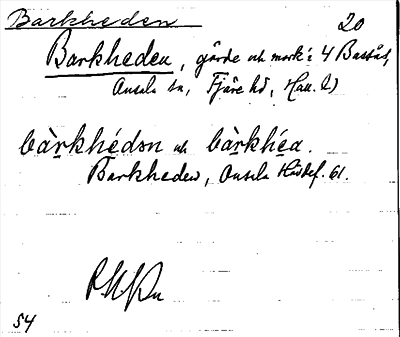 Barkheden 20
Barkheden, gärde och mark i 4 Bastås,
Onsala sn, Fjäre hd, Hall. l)
bàrkhédən och bàrkhéa.
Barkheden, Onsala Husbef. 61.
54